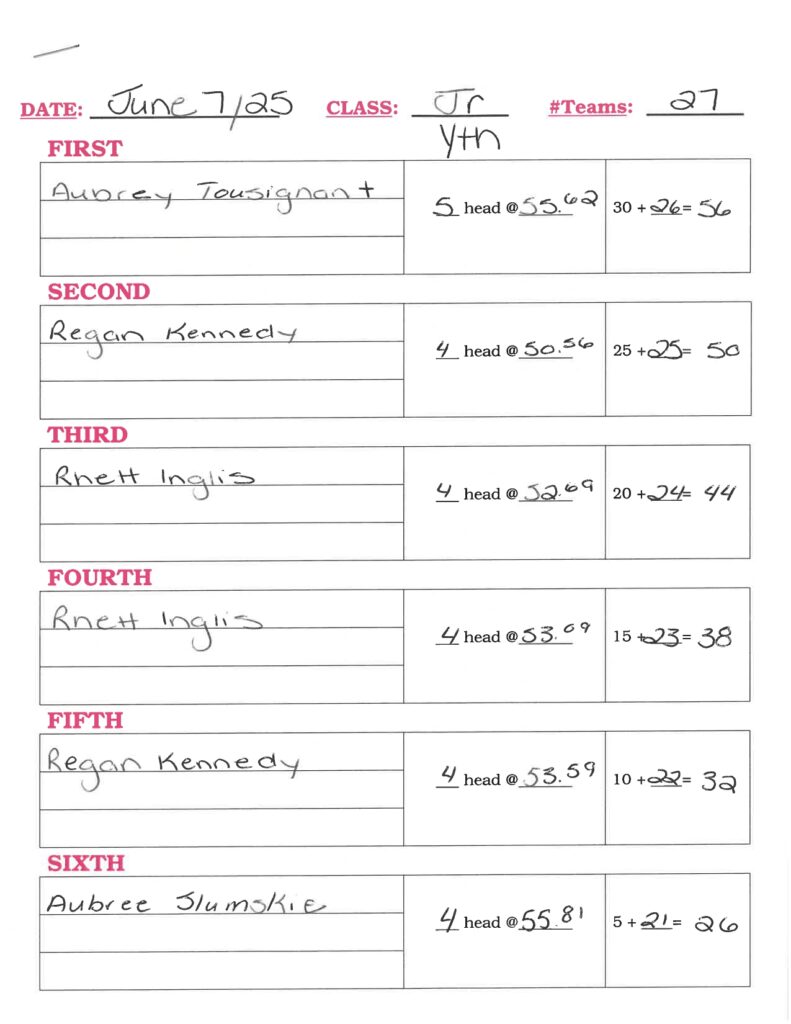 DATE: June 7/25 CLASS: Jr Yth #Teams: 27
FIRST
Aubrey Tousignant 5 head @ 55.62 30 + 26 = 56
SECOND
Regan Kennedy 4 head @ 50.56 25 + 25 = 50
THIRD
Rhett Inglis 4 head @ 52.69 20 + 24 = 44
FOURTH
Rhett Inglis 4 head @ 53.09 15 + 23 = 38
FIFTH
Regan Kennedy 4 head @ 53.59 10 + 22 = 32
SIXTH
Aubree Slumskie 4 head @ 55.81 5 + 21 = 26